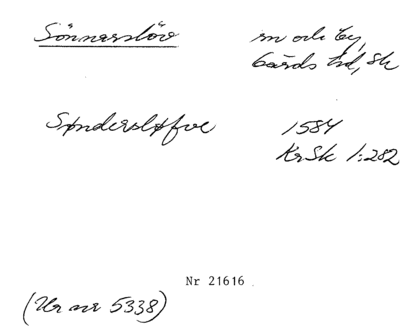 Sönnerslöv sn och by,
Gärds hd, Sk
Søndersløfve 1584
KrSk 1:282
Nr 21616
(Ur nr 5338)